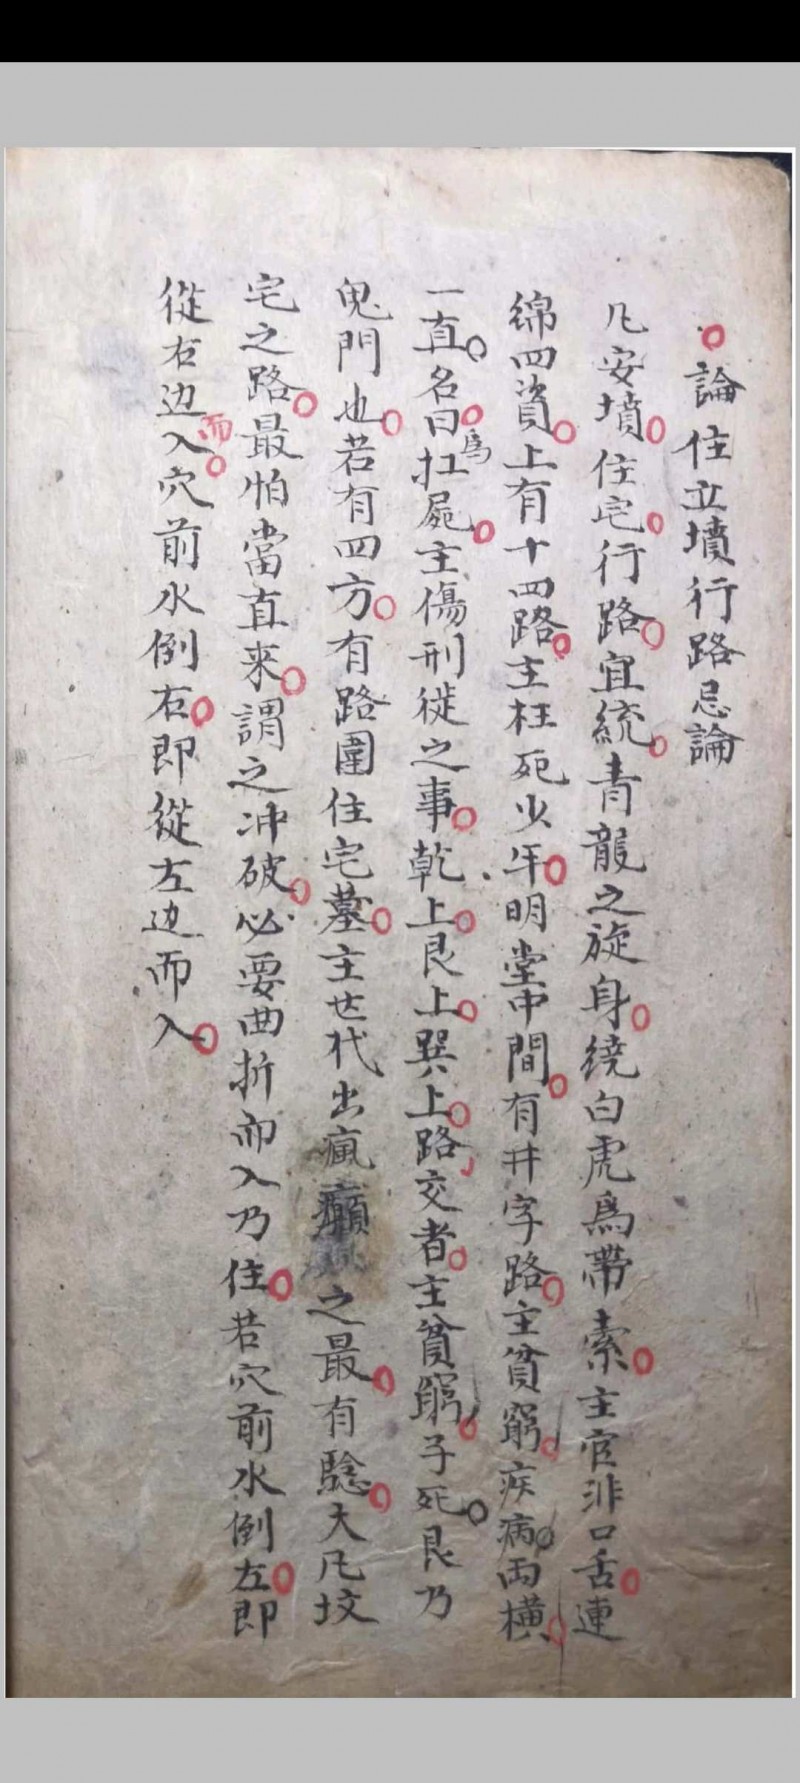 論住立墳行路忌論
凡安墳住宅行路宜統青龍之旋身繞白虎為帶索主官非口舌連
綿四資上有十四路主枉死少年明堂中間有井字路主貧窮疾病両橫
一直名曰為扛屍主傷刑徙之事乾上艮上巽上路交者主貧窮子死艮乃
鬼門也若有四方有路圍住宅墓主世代出瘋癲之最有驗大凡坟
宅之路最怕當直来謂之冲破必要曲折而入乃佳若穴前水倒左即
從右边而入穴前水倒右即從左边而入